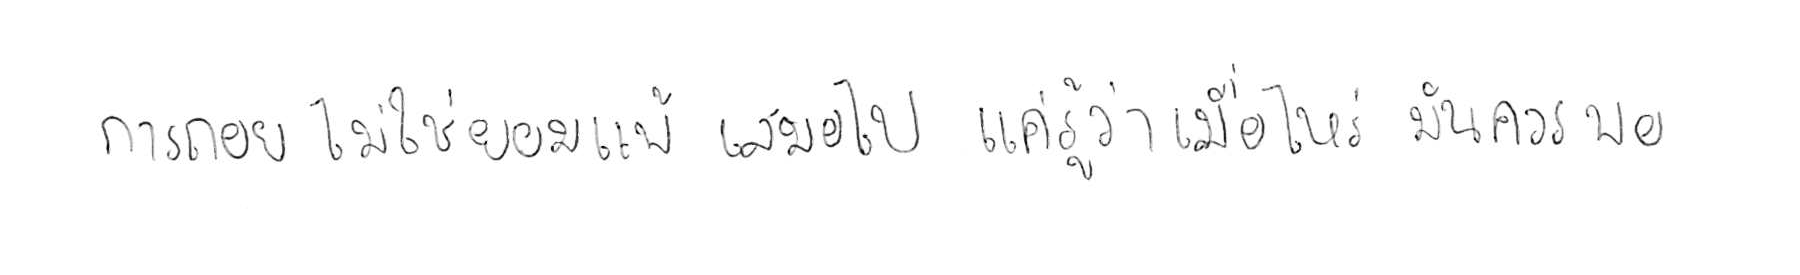 การถอย ไม่ใช่ยอมแพ้ เสมอไป แค่รู้ว่าเมื่อไหร่ มันควรพอ